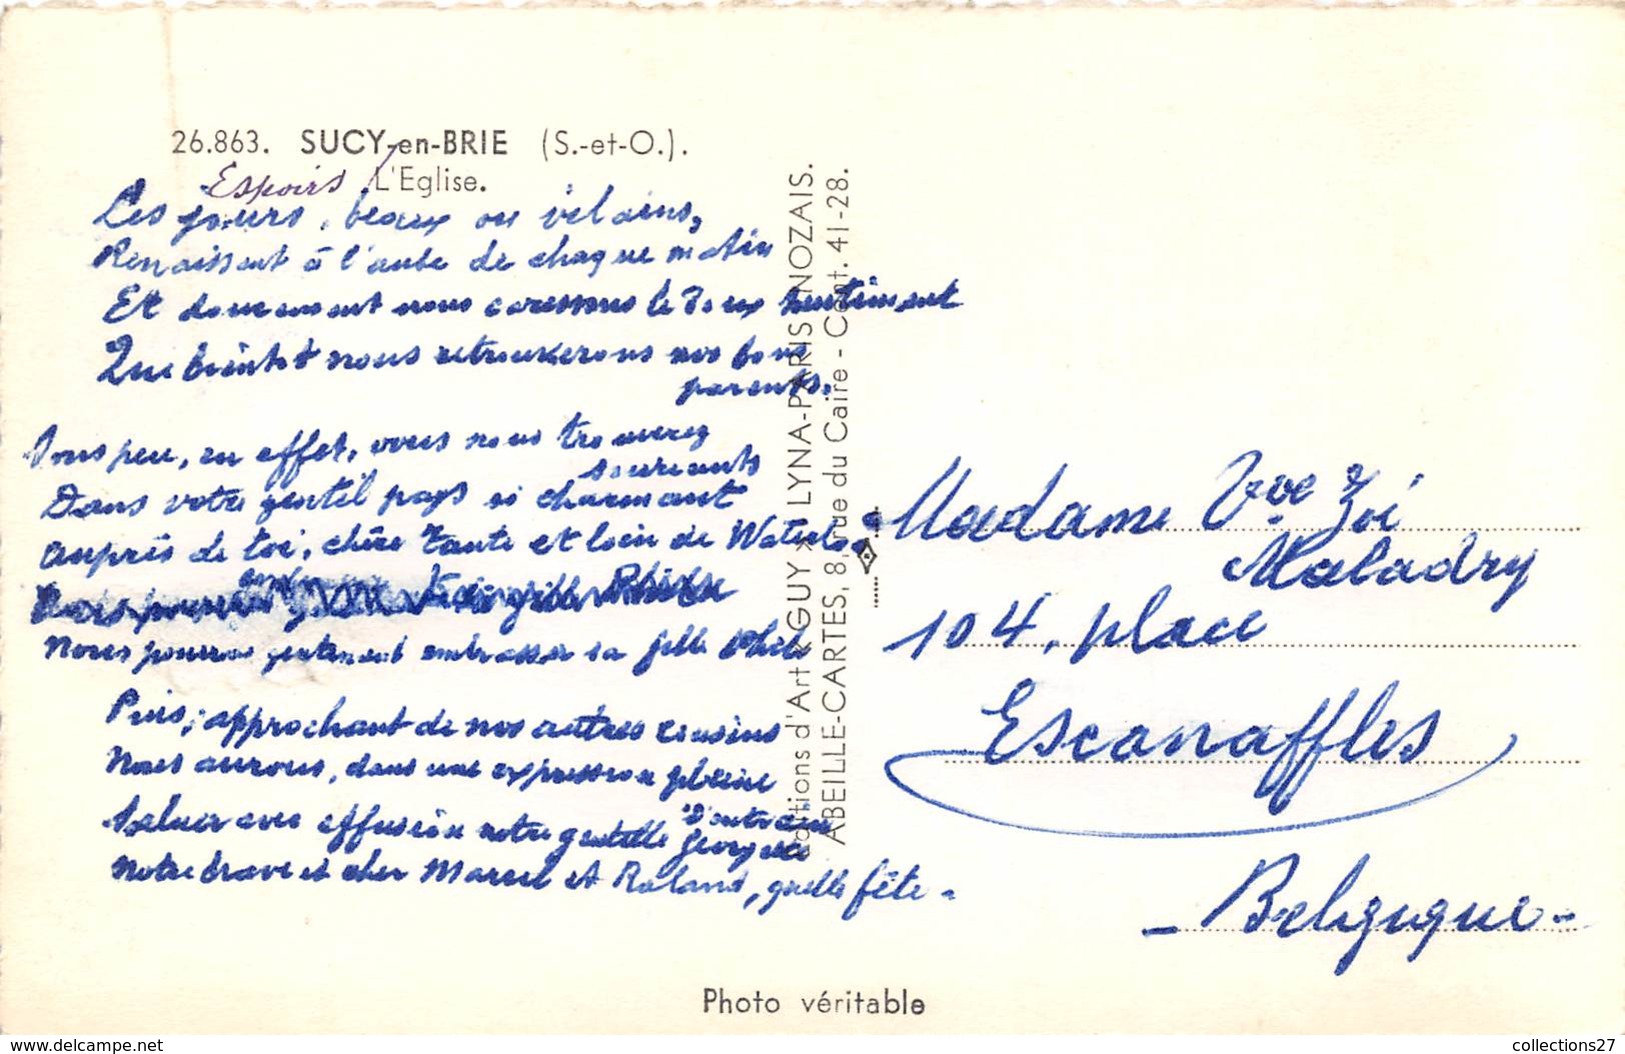 26.863. SUCY-en-BRIE (S.-et-O.).
L'Eglise.
Espoirs
Les jours, beaux ou vilains,
Renaissent à l'aube de chaque matin
Et doucement nous caressons le doux sentiment
Que bientôt nous retrouverons nos bons
parents.
Sous peu, en effet, vous nous trouverez
souriants
Dans votre gentil pays si charmant
Auprès de toi, chère Tante et loin de Waterloo
Nous pourrons gentiment embrasser sa fille
Puis, approchant de nos autres cousins
Nous aurons, dans une expression pleine
Saluer avec effusion notre gentille
d'entrain
Georgette
Notre brave et cher Marcel et Roland, quelle fête.
Editions d'Art "GUY" LYNA-PARIS NOZAIS.
ABEILLE-CARTES, 8, rue du Caire - Cent. 41-28.
Madame Vve Zoé
Maladry
104, place
Escanaffles
- Belgique -
Photo véritable
www.delcampe.net
collections27